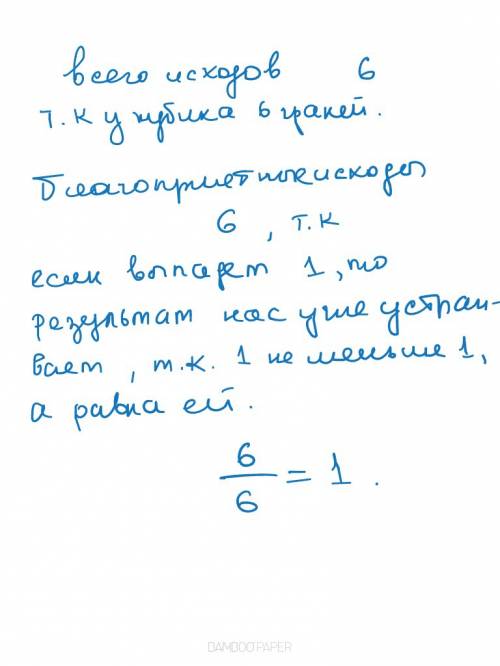 всего исходов 6
т.к у кубика 6 граней.
Благоприетные исходы
6 , т.к
если выпадет 1, то
результат нас уже устраи-
вает, т.к. 1 не меньше 1,
а равна ей.
6
6
= 1 .
BAMBOOPAPER